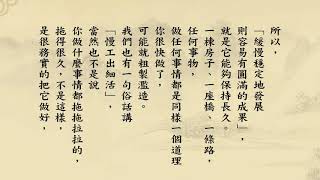 所以，
「緩慢穩定地發展
則容易有圓滿的成果」，
就是它能夠保持長久。
一棟房子、一座橋、一條路，
任何事物，
做任何事情都是同樣一個道理
你很快做了，
可能就粗製濫造。
我們也有一句俗話講
「慢工出細活」，
當然也不是說
你做什麼事情都拖拖拉拉的，
拖得很久，不是這樣，
是很務實的把它做好，